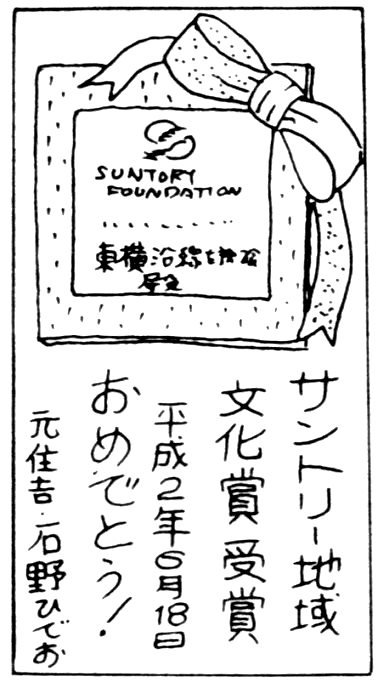 SUNTORY
FOUNDATION
東横沿線を
殿
サントリー地域
文化賞受賞
平成2年6月18日
おめでとう!
元住吉・石野ひでお